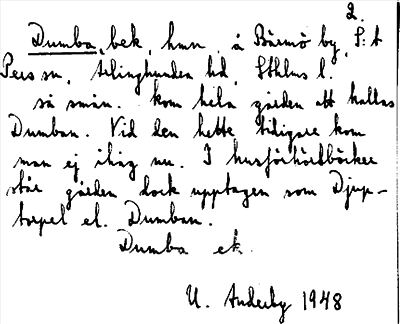 2.
Dumba, bek, hmn å Bärmö by, S:t
Pers sn, Ärlinghundra hd, Sthlms l.
så smån. kom hela gården att kallas
Dumban. Vad den hette tidigare kom
man ej ihåg nu. I husförhörsböcker
står gården dock upptagen som Djup-
torpet el. Dumban.
Dumba ek.
U. Anderby 1948